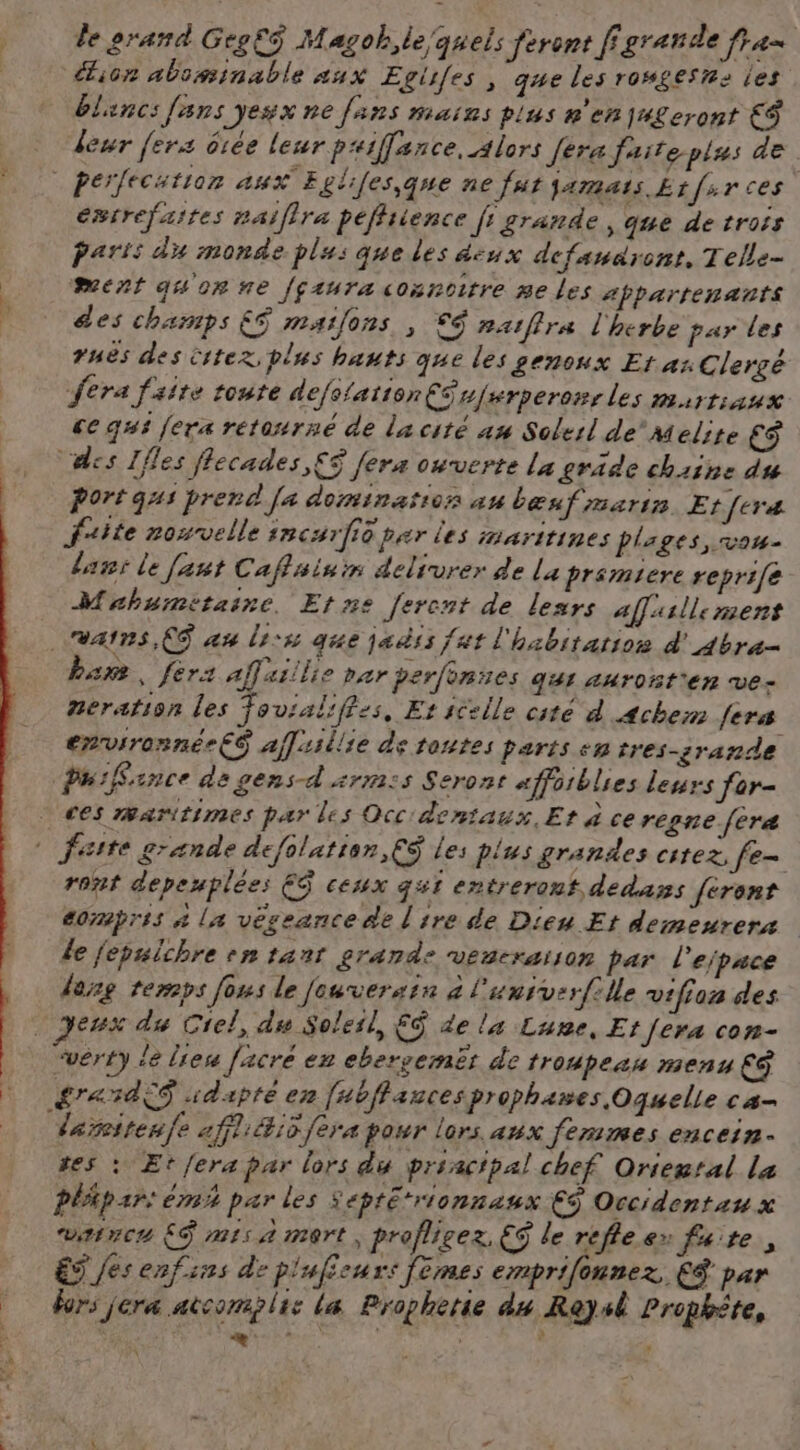 le grand Geg&ſ Magoh, leſquels feront ſi grande fra-
ction abominable aux Egliſes , que les rougesne les
blancs ſans yeux ne ſans mains plus n'en jugeront &
leur ſera ôtée leur puiſſance. Alors ſera faite plus de
perſecution aux Egliſes, que ne fut jamais. Et ſur ces
entrefaites naiſtra peſtilence ſi grande , que de trois
parts du monde plus que les deux defaudront, Telle-
ment qu'on ne ſçaura connoitre ne les appartenants
des champs & maiſons , & naiſtra l'herbe par les
ruës des citez, plus hauts que les genoux Et au Clergé
ſera faite toute deſolation & uſurperont les martiaux
ce qui ſera retourné de la cité au Soleil de Melite &
des Iſles ſtecades, & ſera ouverte la grãde chaine du
port qui prend ſa domination au bœuf marin. Et ſera
faite nouvelle incurſiõ par les maritimes plages, vou-
lant le ſaut Caſtuium delivrer de la premiere repriſe
Mahumetaine. Et ne ſeront de leurs aſſaillement
vains, & au lieu que jadis fut l'habitation d'Abra-
ham , ſera aſſaillie par perſonnes qui auront en ve-
neration les Jovialiſtes, Et icelle cité d Achem ſera
environnée & aſſaillie de toutes parts en tres-grande
puiſſance de gens-d armes Seront affoiblies leurs for-
ces maritimes par les Occidentaux. Et à ce regne ſera
faite grande deſolation, & les plus grandes citez, ſe-
ront depeuplées & ceux qui entreront dedans ſeront
compris à la vẽgeance de l ire de Dieu Et demeurera
le ſepulchre en tant grande veneration par l'eſpace
long temps ſous le ſouverain à l'univerſelle viſion des
yeux du Ciel, du Soleil, & de la Lune, Et ſera con-
verty le lieu ſacré en ebergemẽt de troupeau menu &
grand & adapté en ſubſtances prophanes, O quelle ca-
lamiteuſe afflictiõ ſera pour lors aux femmes encein-
tes : Et ſera par lors du principal chef Oriental la
plûpart émû par les Septẽtrionnaux & Occidentaux
vaincu & mis à mort , profligez, & le reſte en fuite ,
& ſes enfans de pluſieurs fẽmes empriſonnez, & par
lors ſera accomplie la Prophetie du Royal Prophéte,